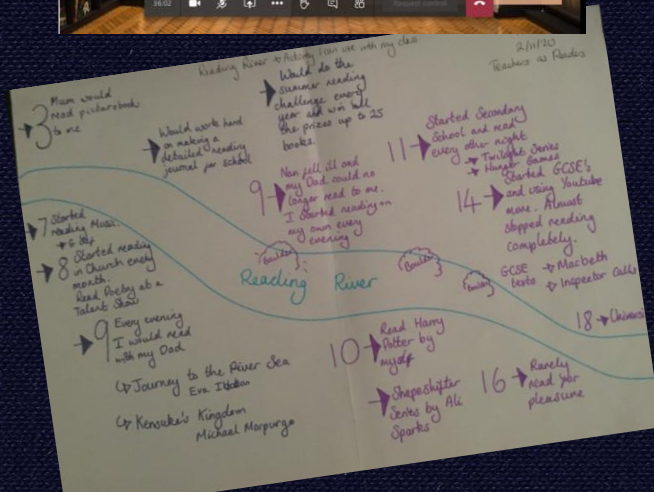 36:02
Request control
Reading River → Activity I can use with my class
2/11/20
Teachers as Readers
3 Mum would
read picturebooks
to me
Would work hard
on making a
detailed reading
journal for school
Would do the
summer reading
challenge every
year and win all
the prizes up to 25
books.
9 Nan fell ill and
my Dad could no
longer read to me.
I started reading on
my own every
evening
11 Started Secondary
School and read
every other night
→ Twilight Series
→ Hunger Games
14 Started GCSE's
and using Youtube
more. Almost
stopped reading
completely.
GCSE
texts
→ Macbeth
→ Inspector Calls
7 Started
reading Music.
8 Started reading
in Church every
month.
Read Poetry at a
Talent Show
9 Every evening
I would read
with my Dad
↳ Journey to the River Sea
Eva Ibbotson
↳ Kensuke's Kingdom
Michael Morpurgo
Boulder
Reading River
Boulder
Boulder
10 Read Harry
Potter by
myself
Shapeshifter
Series by Ali
Sparks
16 Rarely
read for
pleasure
18 →